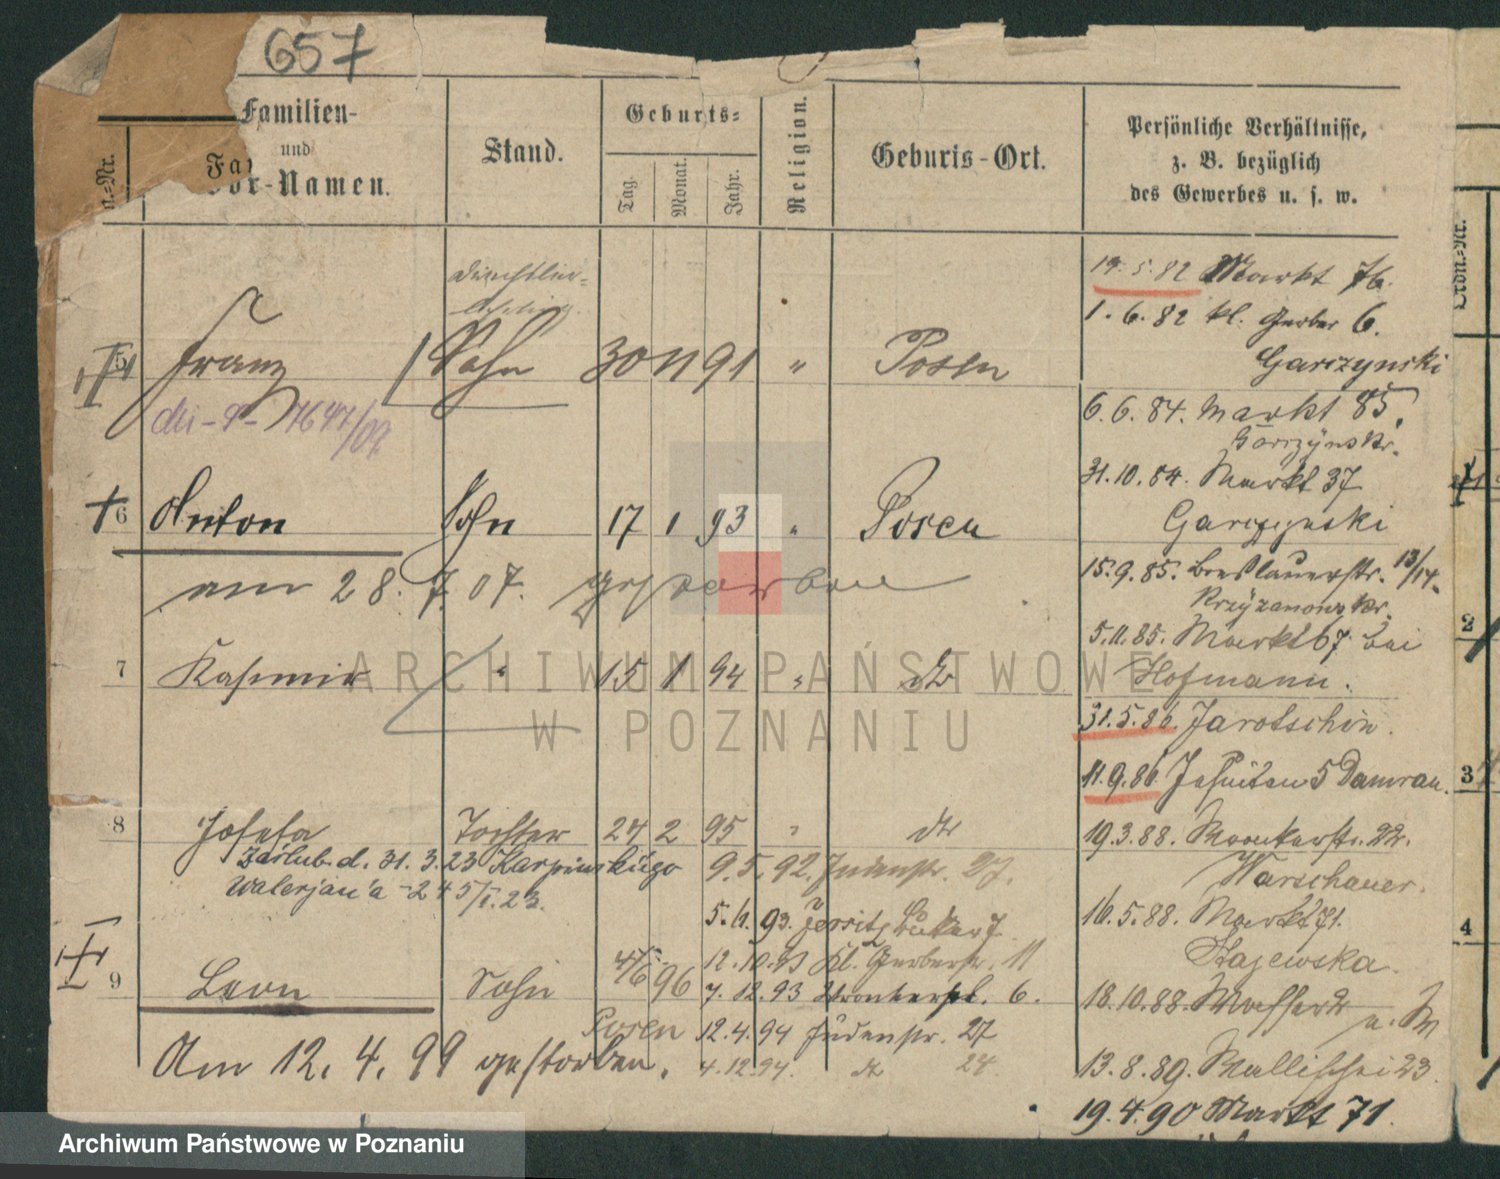 657
Familien-
und
Vor-Namen.
Stand.
Geburts-
Tag.
Monat.
Jahr.
Religion.
Geburts-Ort.
Persönliche Verhältnisse,
z. B. bezüglich
des Gewerbes u. s. w.
5 Franz Sohn 30 11 91 " Posen
7647/09
6 Anton Sohn 17 1 93 " Posen
am 28. 7. 07. gestorben
7 Kasimir " 15 1 94 "
8 Josefa Tochter 24 2 95 " do
zaślub. d. 31. 3. 23 Karpińskiego
Walerjan'a
9 Leon Sohn 4/6 96
Posen
Am 12. 4. 99 gestorben.
9. 5. 92. Judenstr. 27.
12. 10. 93 Kl. Gerberstr. 11
7. 12. 93 Wronkerpl. 6.
12. 4. 94 Judenstr. 27
4. 12. 94. do 24
19. 5. 82 Markt 76.
1. 6. 82 kl. Gerber 6.
Garczynski
6. 6. 84. Markt 85.
Garczynski.
31. 10. 84. Markt 37
Garczynski
15. 9. 85. Breslauerstr. 13/14.
Krzyżanowski.
5. 11. 85. Markt 67 bei
Hofmann.
31. 5. 86. Jarotschin.
11. 9. 86. Jesuiten 5 Damrau.
19. 3. 88. Wronkerstr. 22.
Warschauer.
16. 5. 88. Markt 71.
Stajewska.
18. 10. 88.
13. 8. 89. Wallischei 23
19. 4. 90 Markt 71.
Ordn.-Nr.
2
3
4
ARCHIWUM PAŃSTWOWE
W POZNANIU
Archiwum Państwowe w Poznaniu